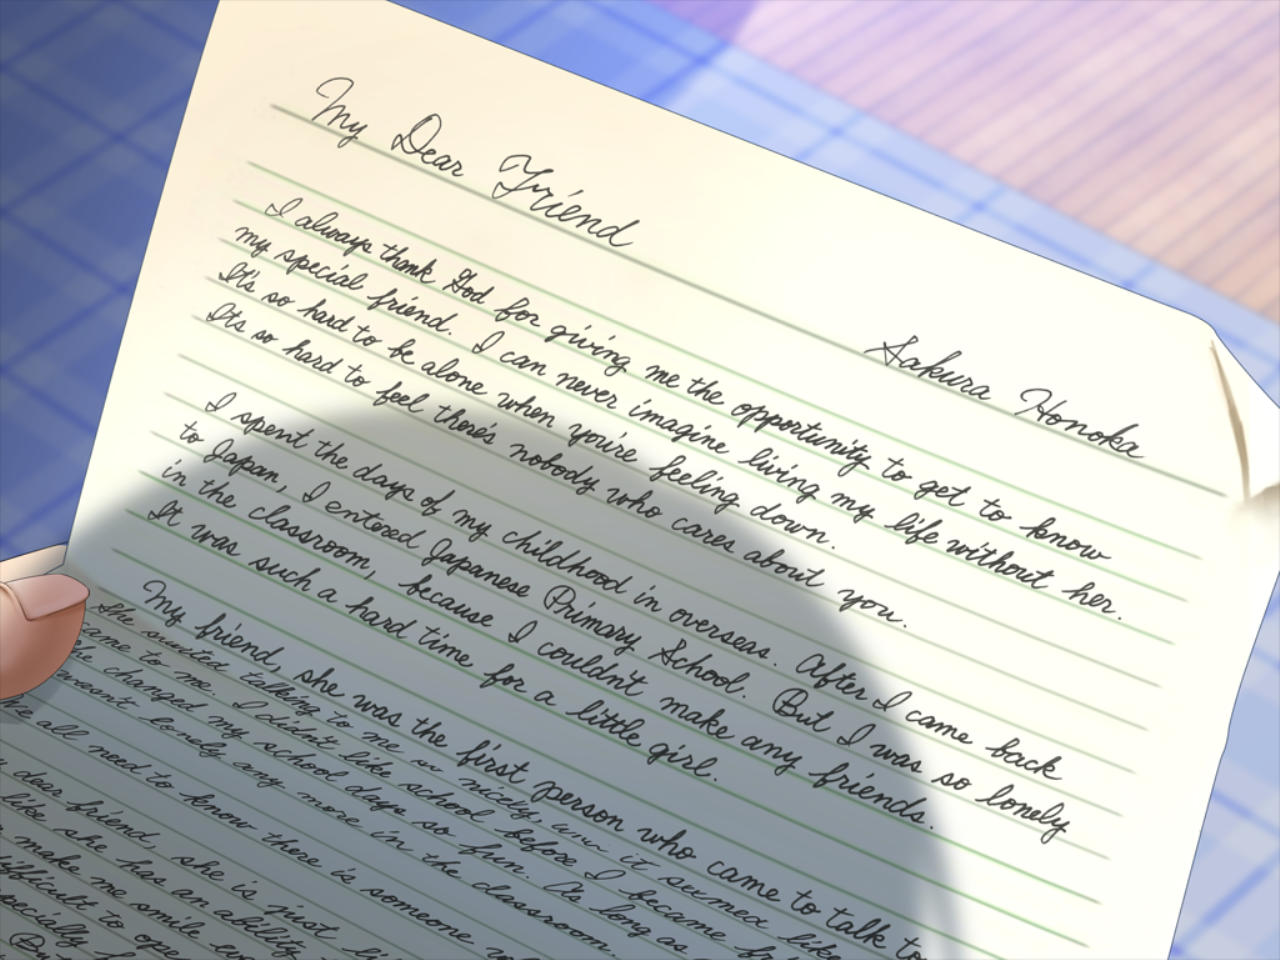 My Dear Friend
Sakura Honoka
I always thank God for giving me the opportunity to get to know
my special friend. I can never imagine living my life without her.
It's so hard to be alone when you're feeling down.
Its so hard to feel there's nobody who cares about you.
I spent the days of my childhood in overseas. After I came back
to Japan, I entered Japanese Primary School. But I was so lonely
in the classroom, because I couldn't make any friends.
It was such a hard time for a little girl.
My friend, she was the first person who came to talk to
She started talking to me so nicely, and it seemed like
came to me. I didn't like school before I became
changed my school days so fun. As long as
wasn't lonely any more in the classroom.
We all need to know there is someone
dear friend, she is just
like she has an ability
make me smile
difficult to